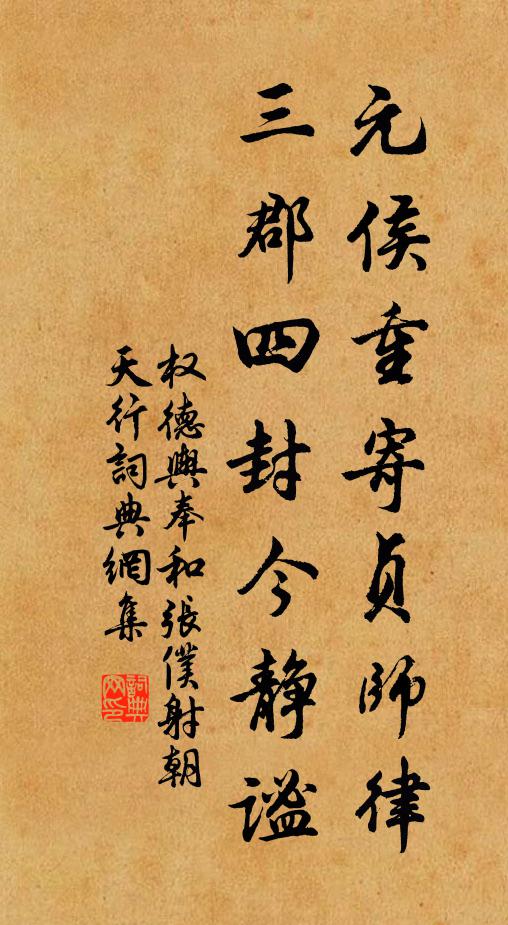 元侯重寄贞師律
三郡四封今靜謐
权德輿奉和張僕射朝
天行詞典網集
詞典网印